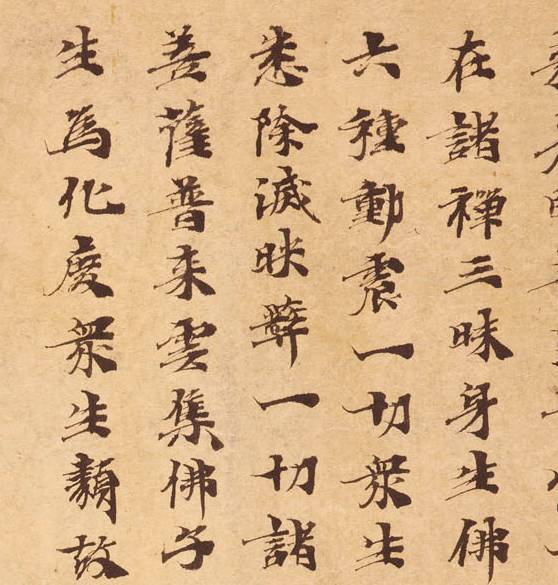 在諸禪三昧身生佛
六種動震一切眾生
悉除滅昧弊一切諸
善薩普来雲集佛子
生為化度眾生類故